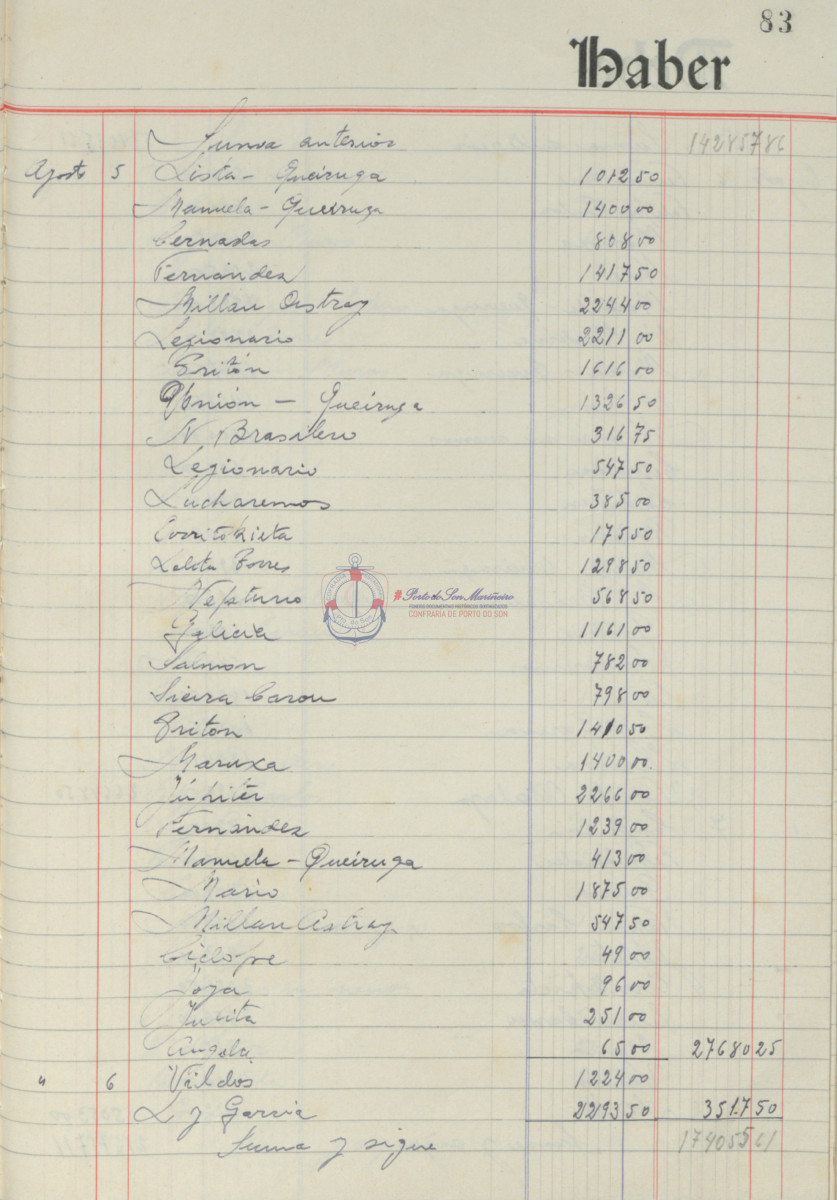 83
Haber
Suma anterior 14285786
Agosto 5 Lista - Queiruga 1012 50
Manuela - Queiruga 1400 00
Cernadas 808 00
Fernández 1417 50
Millán Astray 2244 00
Legionario 2211 00
Tritón 1616 00
Unión - Queiruga 1326 50
N Brasilero 316 75
Legionario 547 50
Lucharemos 385 00
175 50
Lolita Torres 1298 50
Neptuno 568 50
Galicia 1161 00
Salmon 782 00
Sieira Carou 798 00
Triton 1410 50
Maruxa 1400 00
Júpiter 2266 00
Fernández 1239 00
Manuela - Queiruga 413 00
Mario 1875 00
Millan Astray 547 50
Ciclope 49 00
96 00
Julita 251 00
Angola 65 00 27680 25
" 6 Vildos 1224 00
L y Garcia 2293 50 3517 50
Suma y sigue 174055 61
#PortodoSon Mariñeiro
CONFRARIA DE PORTO DO SON